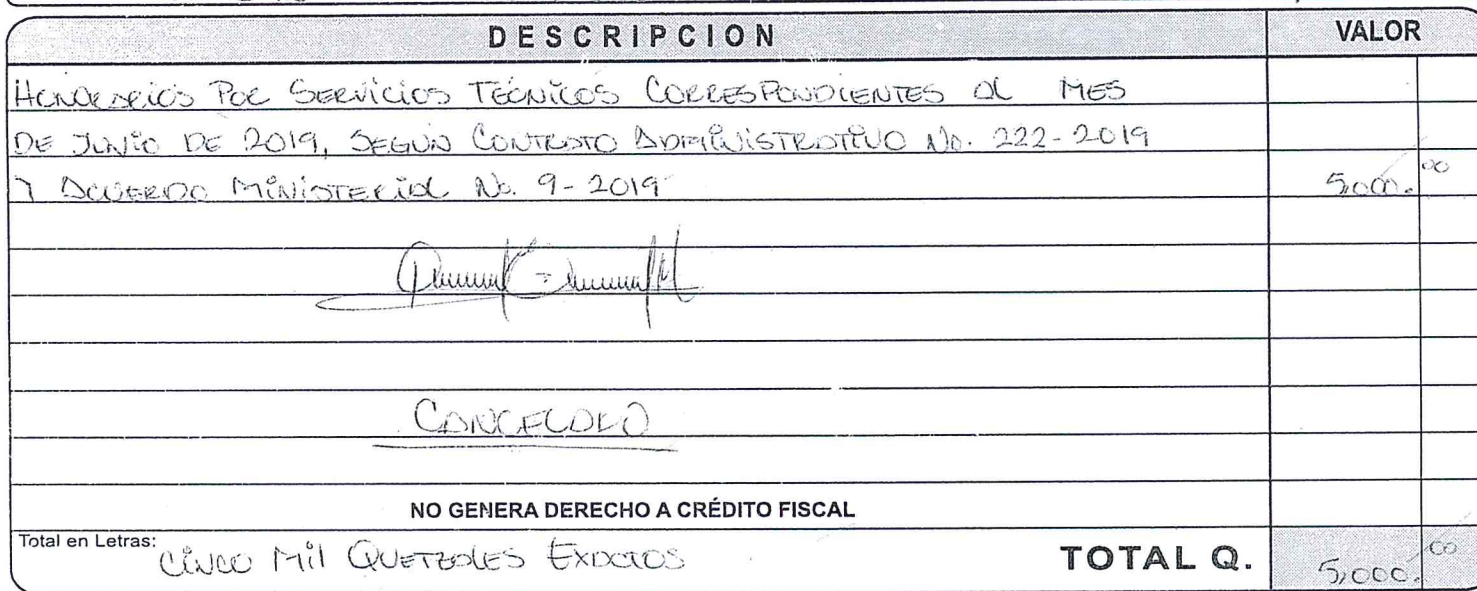 DESCRIPCION VALOR
HONORARIOS POR SERVICIOS TÉCNICOS CORRESPONDIENTES AL MES
DE JUNIO DE 2019, SEGÚN CONTRATO ADMINISTRATIVO No. 222-2019
Y ACUERDO MINISTERIAL No. 9-2019 5,000.00
CANCELADO
NO GENERA DERECHO A CRÉDITO FISCAL
Total en Letras: CINCO MIL QUETZALES EXACTOS TOTAL Q. 5,000.00